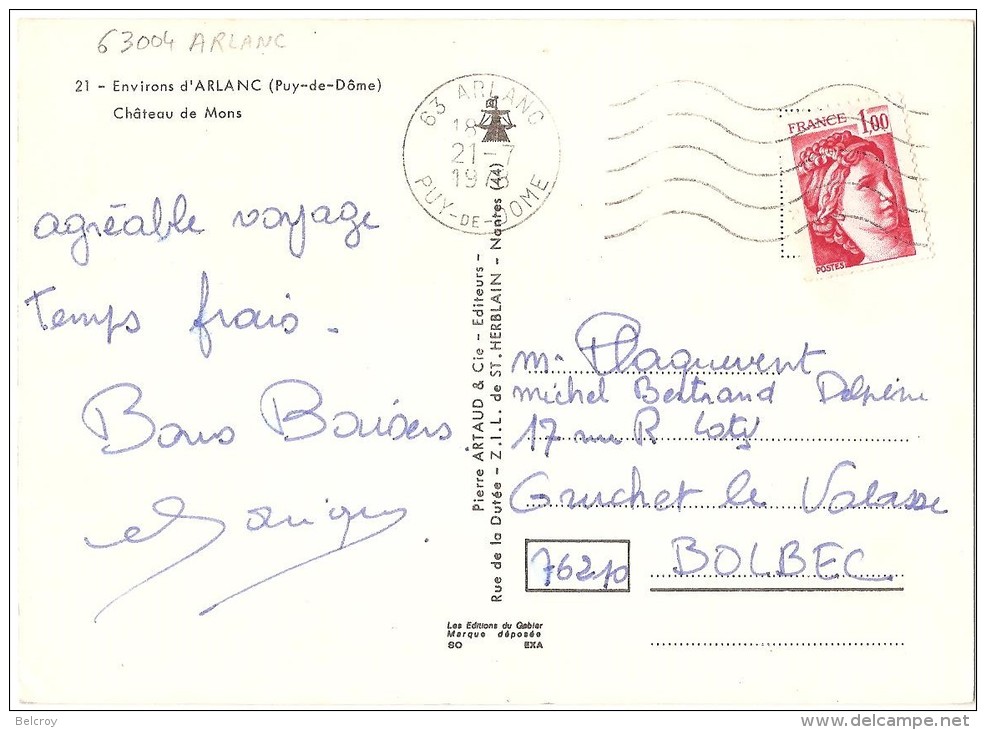 63004 ARLANC
21 - Environs d'ARLANC (Puy-de-Dôme)
Château de Mons
63 ARLANC
18
21-7
1978
PUY-DE-DOME
FRANCE 1,00
POSTES
agréable voyage
temps frais.
Bons Baisers
Pierre ARTAUD & Cie - Editeurs -
Rue de la Dutée - Z.I.L. de ST. HERBLAIN - Nantes (44)
m. Plaquevent
michel Bertrand
17 rue R Coty
Gruchet le Valasse
76210 BOLBEC
Les Editions du Gabier
Marque déposée
SO EXA
Belcroy
delcampe.net